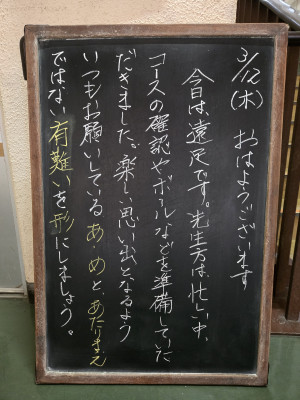 3/12(木) おはようございます
今日は遠足です。先生方は、忙しい中、
コースの確認やボールなどを準備していた
だきました。楽しい思い出となるよう
いつもお願いしているあ・め・と、あたりまえ
ではない有難いを形にしましょう。